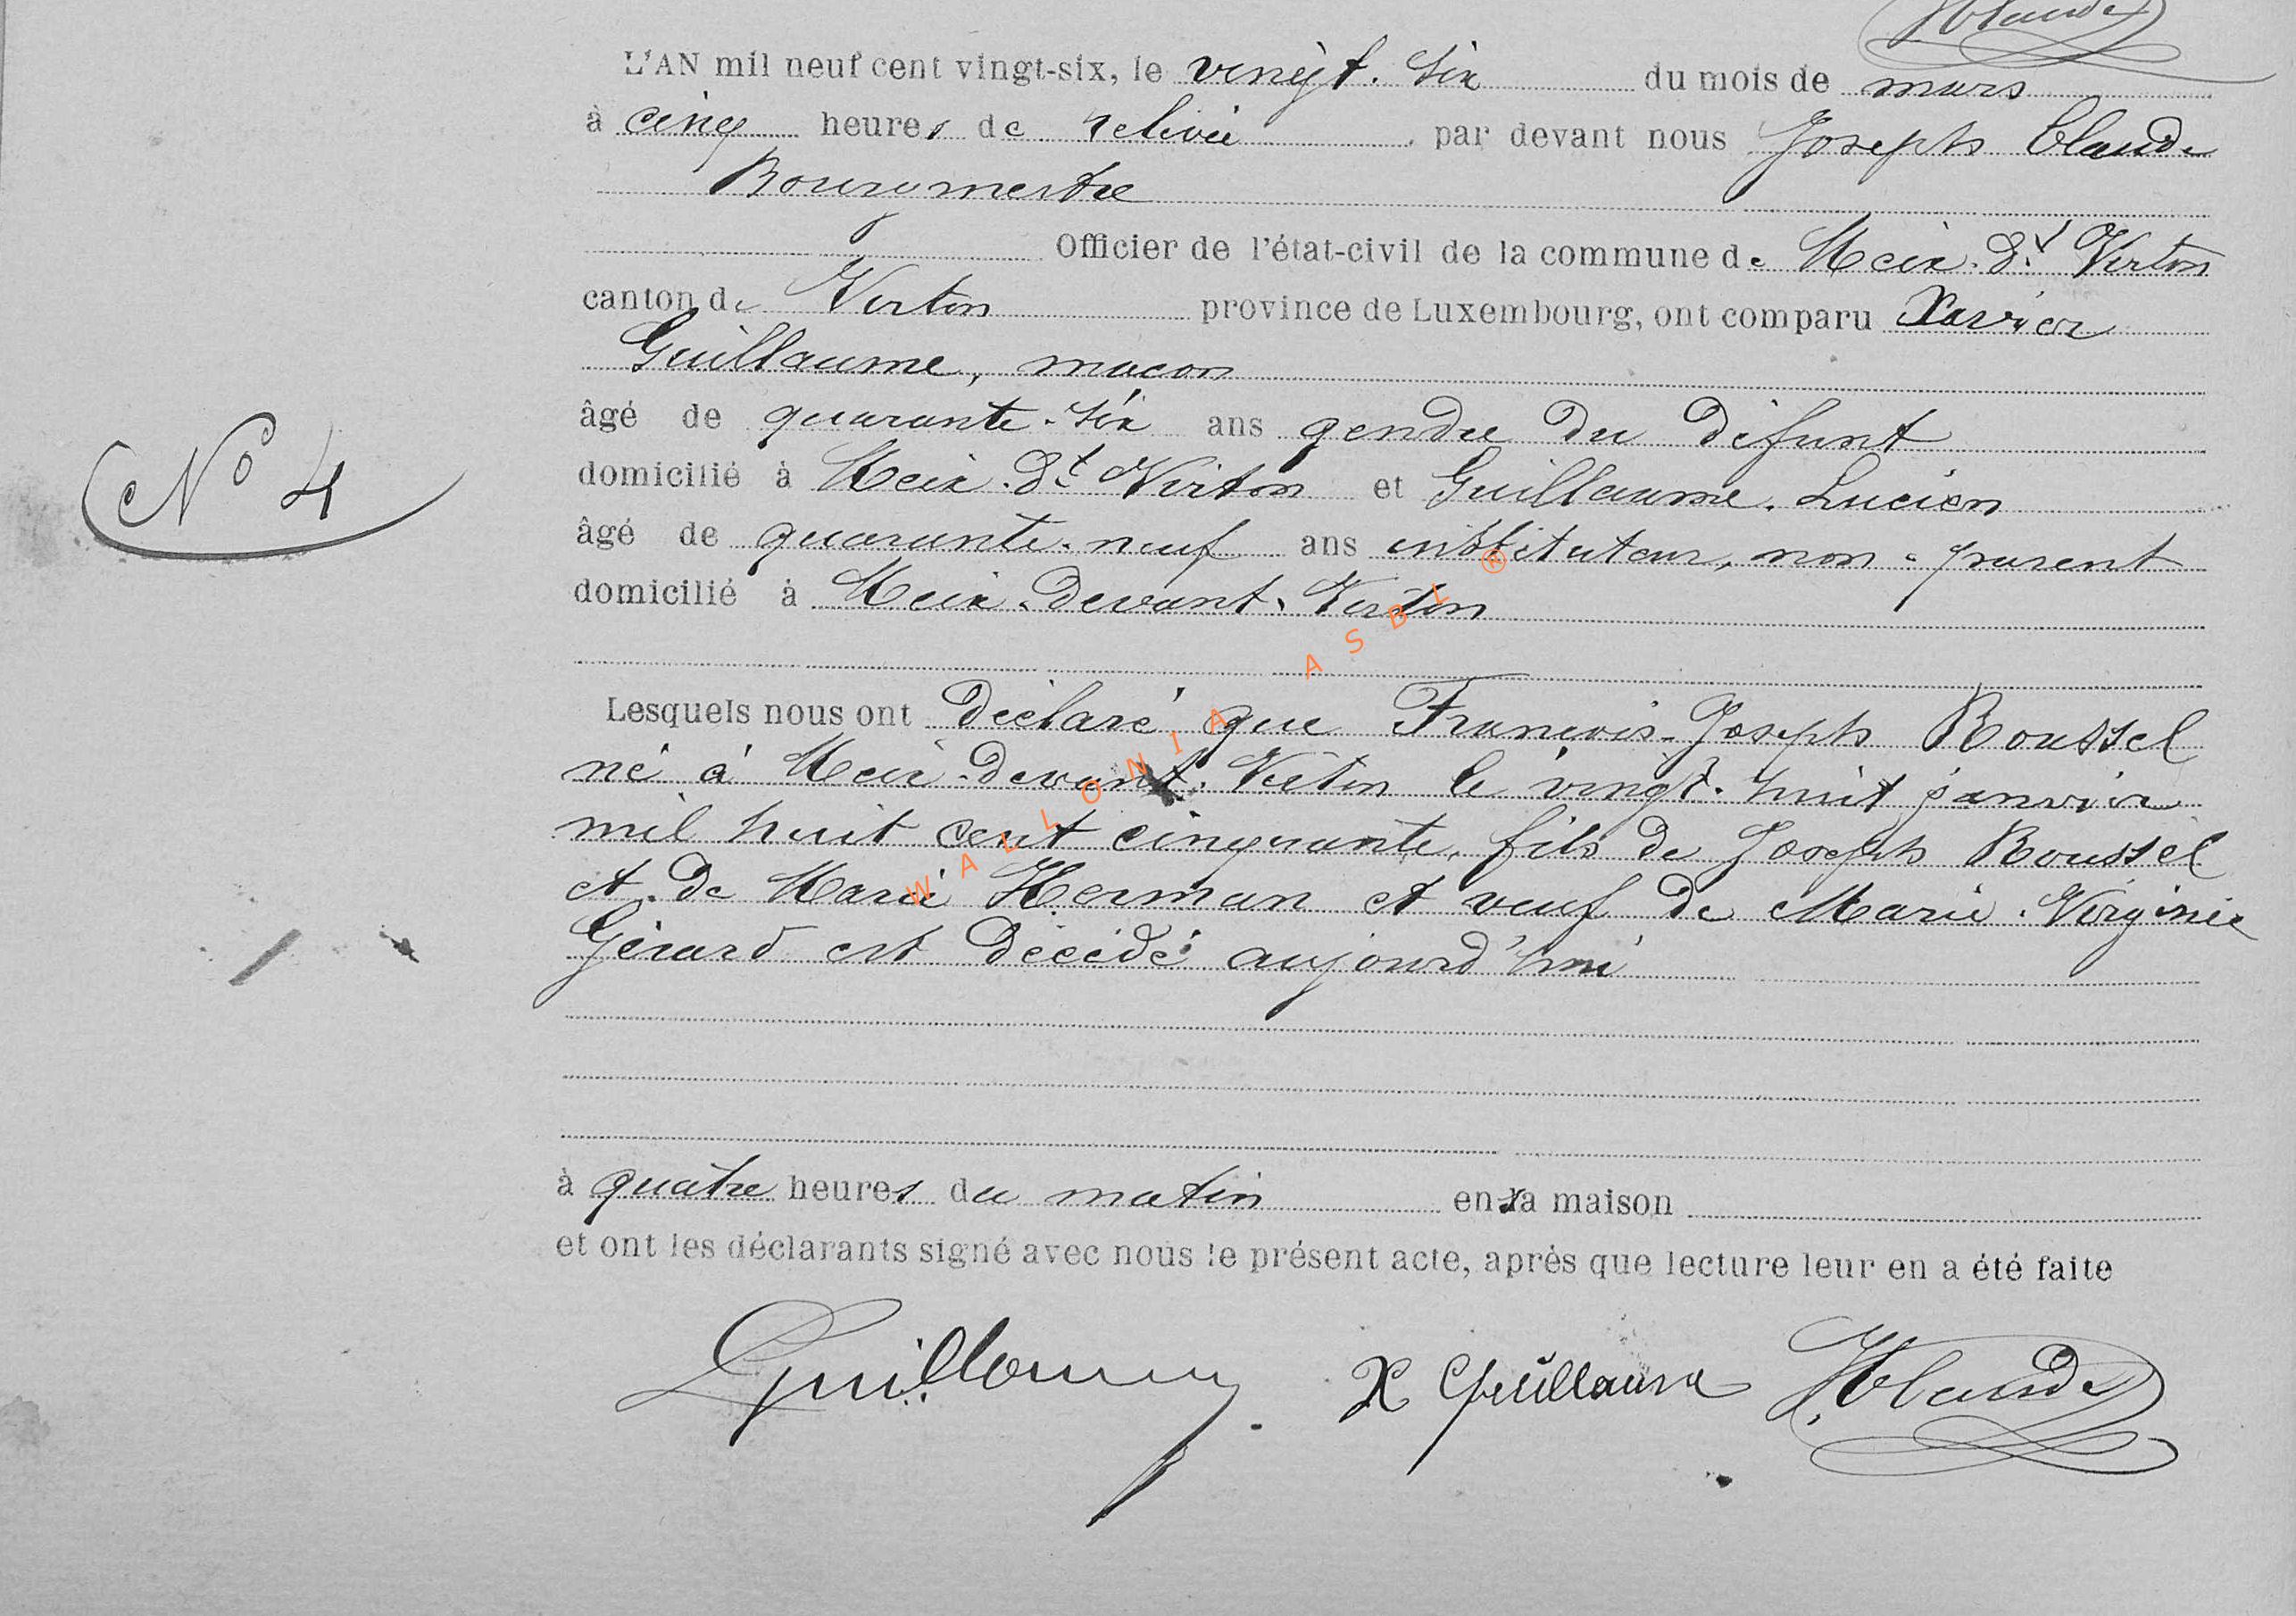 Claude
L'AN mil neuf cent vingt-six, le vingt. six du mois de mars
à cinq heures de relevée, par devant nous Joseph Claude
Bourgmestre
Officier de l'état-civil de la commune de Meix. Dt Virton
canton de Virton province de Luxembourg, ont comparu Xavier
Guillaume, maçon
âgé de quarante-six ans gendre du défunt
domicilié à Meix. Dt Virton et Guillaume. Lucien
âgé de quarante-neuf ans instituteur, non-parent
domicilié à Meix-devant-Virton
Nº 4
Lesquels nous ont déclaré que François-Joseph Roussel
né à Meix-devant-Virton le vingt-huit janvier
mil huit cent cinquante, fils de Joseph Roussel
et de Marie Herman et veuf de Marie-Virginie
Gérard est décédé aujourd'hui
à quatre heures du matin en sa maison
et ont les déclarants signé avec nous le présent acte, après que lecture leur en a été faite
LGuillaume X Guillaume JClaude
WALLONIA ASBL ®